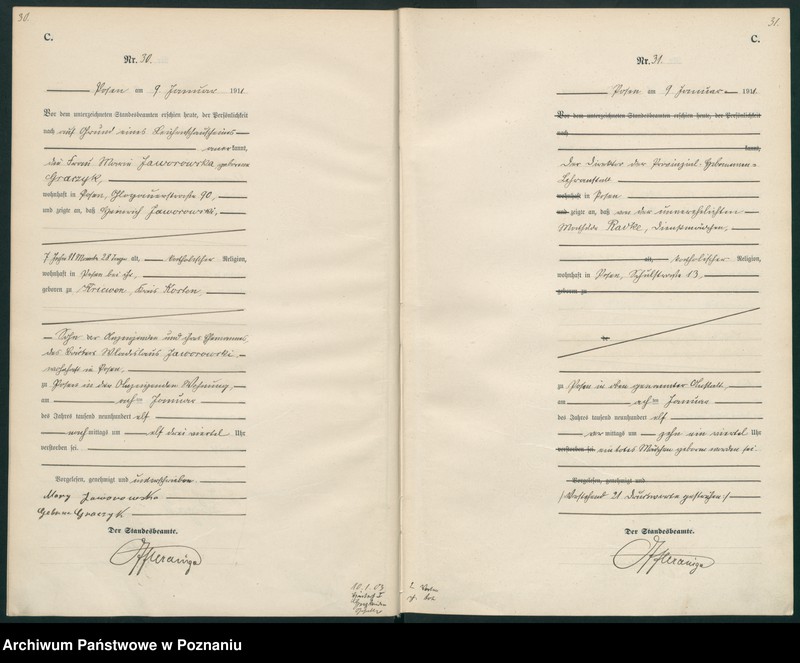 30.
C.
Nr. 30.
Posen am 9 Januar 1911
Vor dem unterzeichneten Standesbeamten erschien heute, der Persönlichkeit
nach auf Grund eines Leichenschauscheins
anerkannt,
die Frau Maria Jaworowska geborene
Graczyk,
wohnhaft in Posen, Glogauerstraße 90,
und zeigte an, daß Heinrich Jaworowski,
7 Jahre 11 Monate 28 Tage alt, katholischer Religion,
wohnhaft in Posen bei ihr,
geboren zu Kreis
Sohn der Anzeigenden und ihres Ehemannes,
des Wladislaus Jaworowski
wohnhaft in Posen,
zu Posen in der Anzeigenden Wohnung,
am achten Januar
des Jahres tausend neunhundert elf
nachmittags um elf drei viertel Uhr
verstorben sei.
Vorgelesen, genehmigt und unterschrieben
Mary Jaworowska
Geborene Graczyk
Der Standesbeamte.
31.
C.
Nr. 31.
Posen am 9 Januar 1911
Vor dem unterzeichneten Standesbeamten erschien heute, der Persönlichkeit
nach
kannt,
Der Direktor der Provinzial-Hebammen-
Lehranstalt
wohnhaft in Posen
und zeigte an, daß von der unverehelichten
Mathilde Radke, Dienstmädchen,
alt, katholischer Religion,
wohnhaft in Posen, Schulstraße 13,
geboren zu
zu Posen in oben genannter Anstalt,
am achten Januar
des Jahres tausend neunhundert elf
vormittags um zehn ein viertel Uhr
verstorben sei ein totes Mädchen geboren worden sei.
Vorgelesen, genehmigt und
/: Vorstehend 21 Druckworte gestrichen :/
Der Standesbeamte.
Archiwum Państwowe w Poznaniu